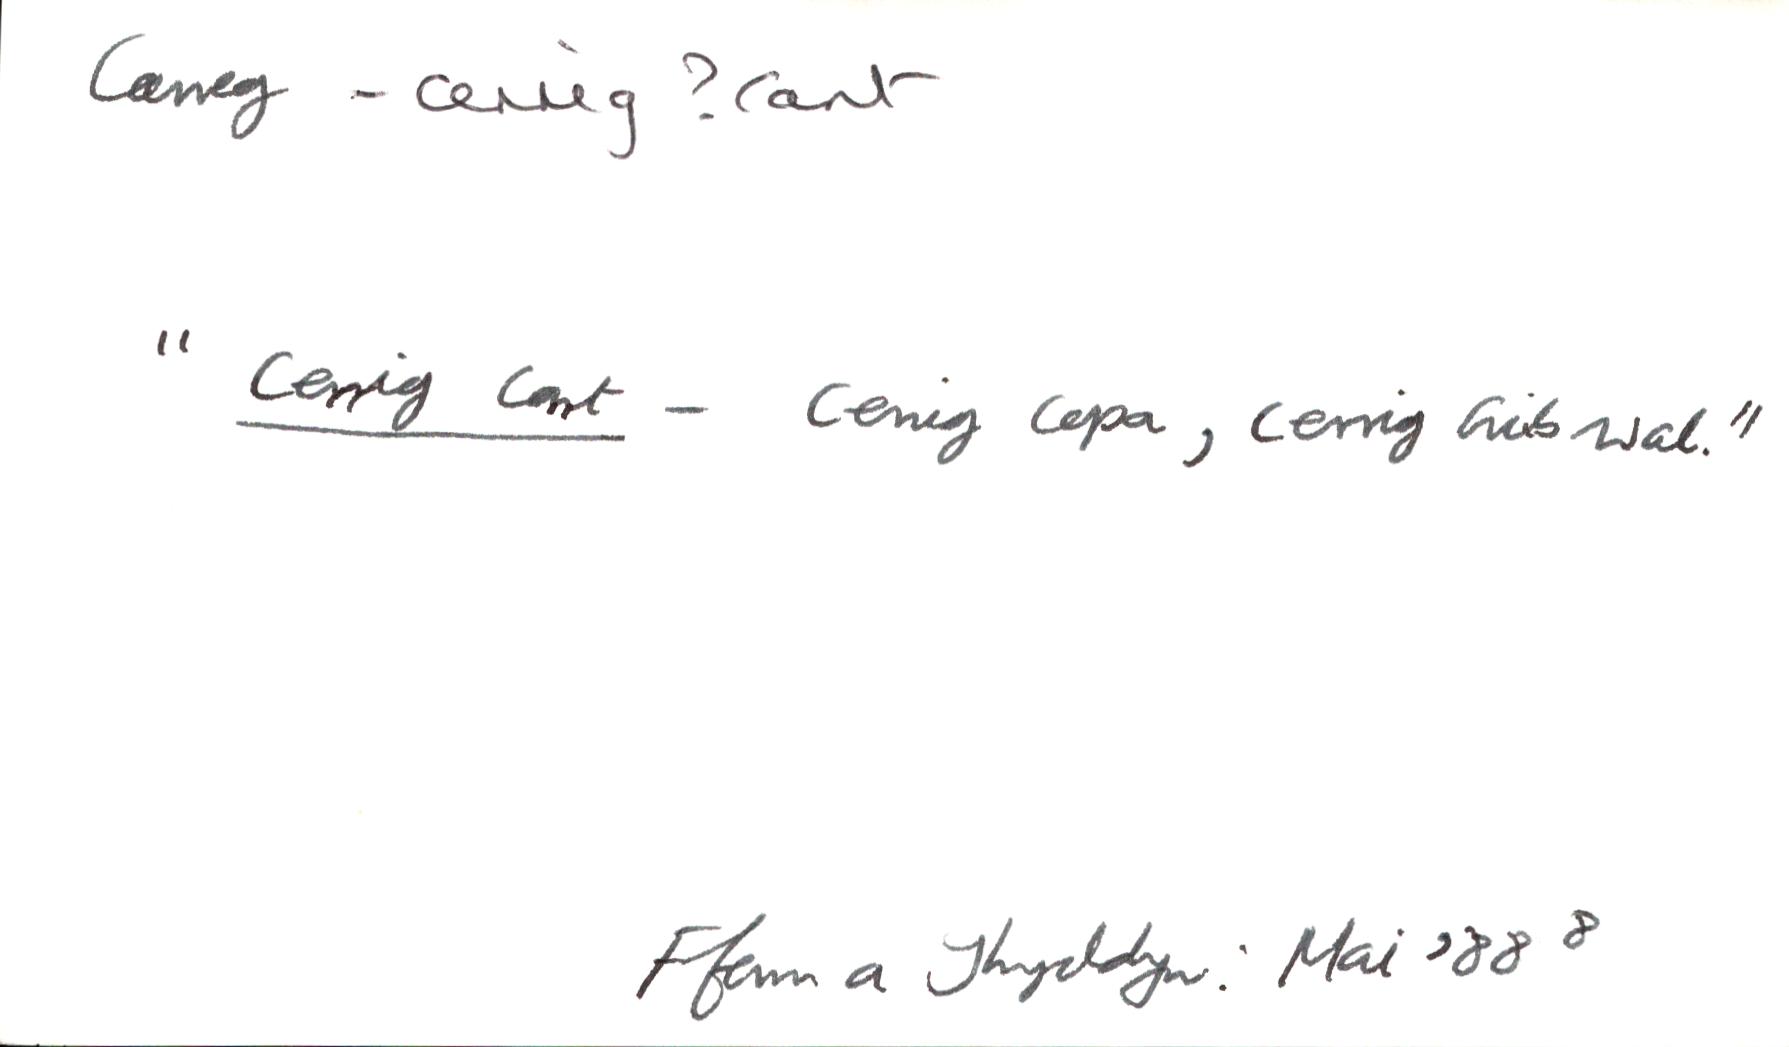 Carreg - cerrig ? cant
" Cerrig Cant - Cerrig Copa, Cerrig Crib wal."
Fferm a Thyddyn: Mai '88 8